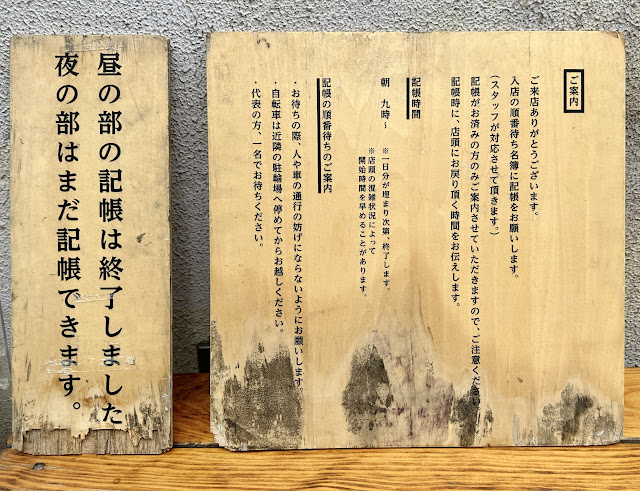 ご案内
ご来店ありがとうございます。
入店の順番待ち名簿に記帳をお願いします。
(スタッフが対応させて頂きます。)
記帳がお済みの方のみご案内させていただきますので、ご注意ください。
記帳時に、店頭にお戻り頂く時間をお伝えします。
記帳時間
朝 九時〜
※一日分が埋まり次第、終了します。
※店頭の混雑状況によって
開始時間を早めることがあります。
記帳の順番待ちのご案内
・お待ちの際、人や車の通行の妨げにならないようにお願いします。
・自転車は近隣の駐輪場へ停めてからお越しください。
・代表の方、一名でお待ちください。
昼の部の記帳は終了しました
夜の部はまだ記帳できます。